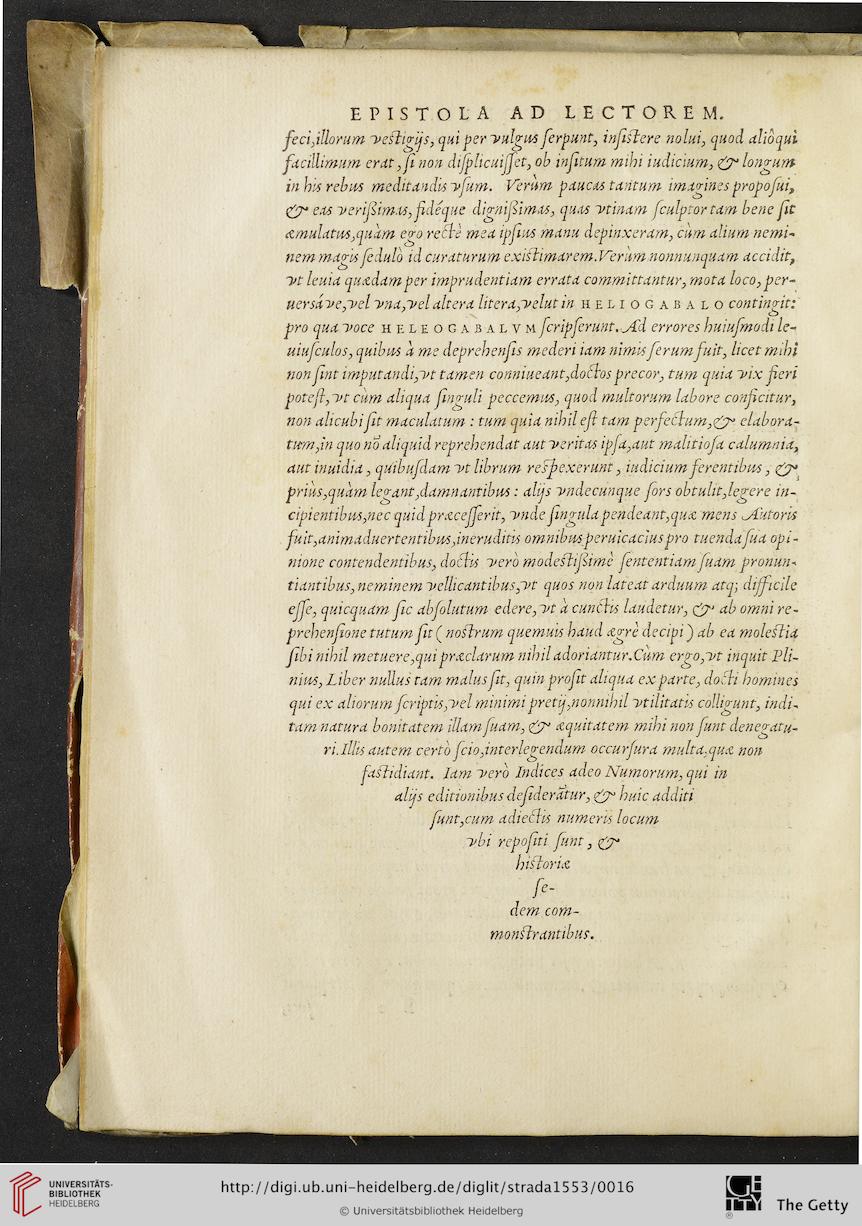 EPISTOLA AD LECTOREM.
feci,illorum vestigijs, qui per vulgus serpunt, insistere nolui, quod aliôqui
facillimum erat, si non displicuisset, ob insitum mihi iudicium, & longum
in his rebus meditandis vsum. Verùm paucas tantum imagines proposui,
& eas verißimas, fidéque dignißimas, quas vtinam sculptor tam bene sit
æmulatus, quàm ego rectè mea ipsius manu depinxeram, cùm alium nemi-
nem magis sedulò id curaturum existimarem. Verùm nonnunquam accidit,
vt leuia quædam per imprudentiam errata committantur, mota loco, per-
uersáve, vel vna, vel altera litera, velut in HELIOGABALO contingit:
pro qua voce HELEOGABALVM scripserunt. Ad errores huiusmodi le-
uiusculos, quibus à me deprehensis mederi iam nimis serum fuit, licet mihi
non sint imputandi, vt tamen conniueant, doctos precor, tum quia vix fieri
potest, vt cùm aliqua singuli peccemus, quod multorum labore conficitur,
non alicubi sit maculatum : tum quia nihil est tam perfectum, & elabora-
tum, in quo nō aliquid reprehendat aut veritas ipsa, aut malitiosa calumnia,
aut inuidia, quibusdam vt librum respexerunt, iudicium ferentibus, &
priùs, quàm legant, damnantibus : alijs vndecunque sors obtulit, legere in-
cipientibus, nec quid præcesserit, vnde singula pendeant, quæ mens Autoris
fuit, animaduertentibus, ineruditis omnibus peruicaciùs pro tuenda sua opi-
nione contendentibus, doctis verò modestißimè sententiam suam pronun-
tiantibus, neminem vellicantibus, vt quos non lateat arduum atq; difficile
esse, quicquam sic absolutum edere, vt à cunctis laudetur, & ab omni re-
prehensione tutum sit (nostrum quemuis haud ægrè decipi) ab ea molestia
sibi nihil metuere, qui præclarum nihil adoriantur. Cùm ergo, vt inquit Pli-
nius, Liber nullus tam malus sit, quin prosit aliqua ex parte, docti homines
qui ex aliorum scriptis, vel minimi pretij, nonnihil vtilitatis colligunt, indi-
tam natura bonitatem illam suam, & æquitatem mihi non sunt denegatu-
ri. Illis autem certò scio, inter legendum occursura multa, quæ non
fastidiant. Iam verò Indices adeo Numorum, qui in
alijs editionibus desiderātur, & huic additi
sunt, cum adiectis numeris locum
vbi repositi sunt, &
historiæ
se-
dem com-
monstrantibus.
UNIVERSITÄTS-
BIBLIOTHEK
HEIDELBERG
http://digi.ub.uni-heidelberg.de/diglit/strada1553/0016
© Universitätsbibliothek Heidelberg
GETTY
The Getty